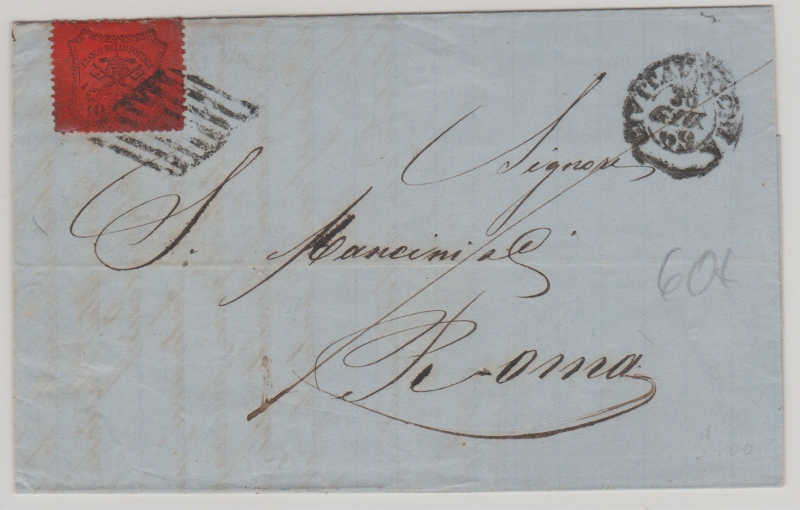 FRANCO BOLLO POSTALE
10
CIVITAVECCHIA
GIU
69
Signore
S. Mancini
Roma
60